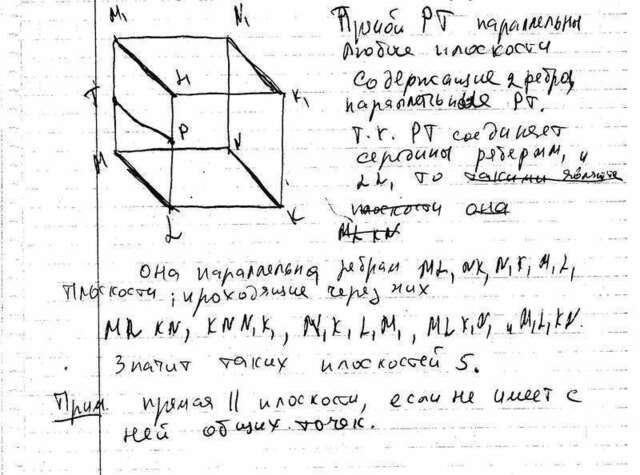 M₁
N₁
H
K₁
T
P
M
N
L
K
Прямой PT параллельны
любые плоскости
содержащие 2 ребра
параллельные PT.
Т.к. PT соединяет
середины и
LL₁ то такими
плоскости она
она параллельна ребрам ML, NK, N₁K₁, M₁L₁
Плоскости, проходящие через них
ML KN, KNN₁K₁, N₁K₁L₁M₁, MLK₁N₁ и M₁L₁KN.
Значит таких плоскостей 5.
Прим. прямая || плоскости, если не имеет с
ней общих точек.